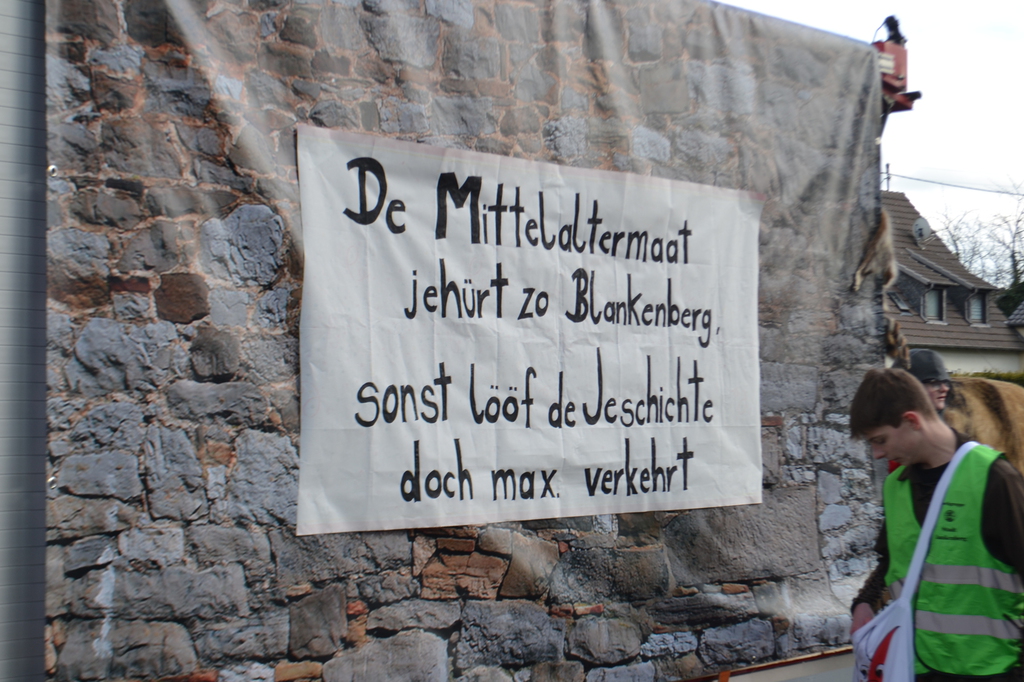 De Mittelaltermaat
jehürt zo Blankenberg,
sonst lööf de Jeschichte
doch max. verkehrt